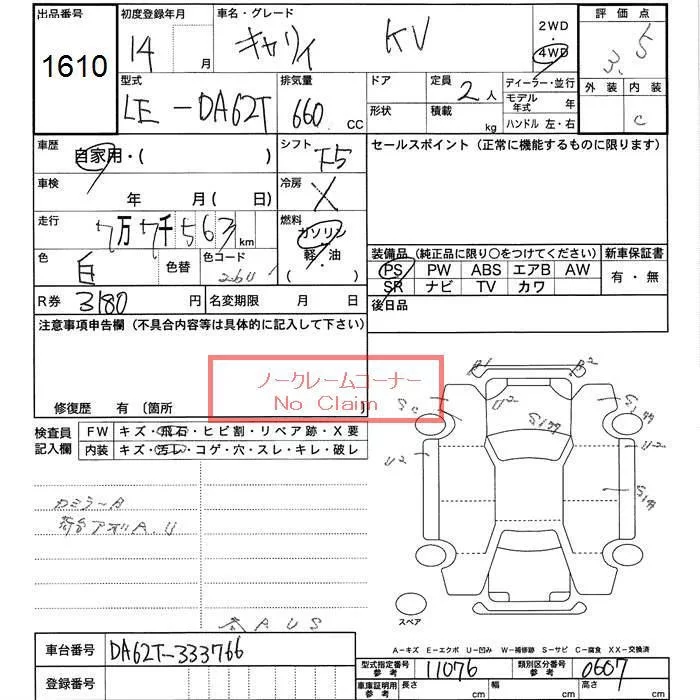 出品番号 初度登録年月 車名・グレード 評価点
1610 14 月 キャリイ KV 2WD 4WD 3.5
型式 排気量 ドア 定員 ディーラー・並行 外装 内装
LE-DA62T 660 CC 形状 2人 モデル年式 年 C
積載 kg ハンドル 左・右
車歴 シフト セールスポイント（正常に機能するものに限ります）
自家用・（ ） F5
車検 年 月（ 日） 冷房 X
走行 7万7千563 km 燃料 ガソリン
色 白 色替 色コード 26U 軽・油 （ ）
装備品（純正品に限り○をつけてください） 新車保証書
PS PW ABS エアB AW 有・無
SR ナビ TV カワ
R券 3180 円 名変期限 月 日 後日品
注意事項申告欄（不具合内容等は具体的に記入して下さい）
ノークレームコーナー
No Claim
修復歴 有〔箇所 〕
検査員記入欄 FW キズ・飛石・ヒビ割・リペア跡・X要
内装 キズ・汚レ・コゲ・穴・スレ・キレ・破レ
B1 B2
U2 S177
U2 S177
U2 S177
カミラーA
荷台アオリA.U
A U S
スペア
A－キズ E－エクボ U－凹み W－補修跡 S－サビ C－腐食 XX－交換済
車台番号 DA62T-333766
型式指定番号 参考 11076 類別区分番号 参考 0607
登録番号 車庫証明用 参考 長さ cm 幅 cm 高さ cm